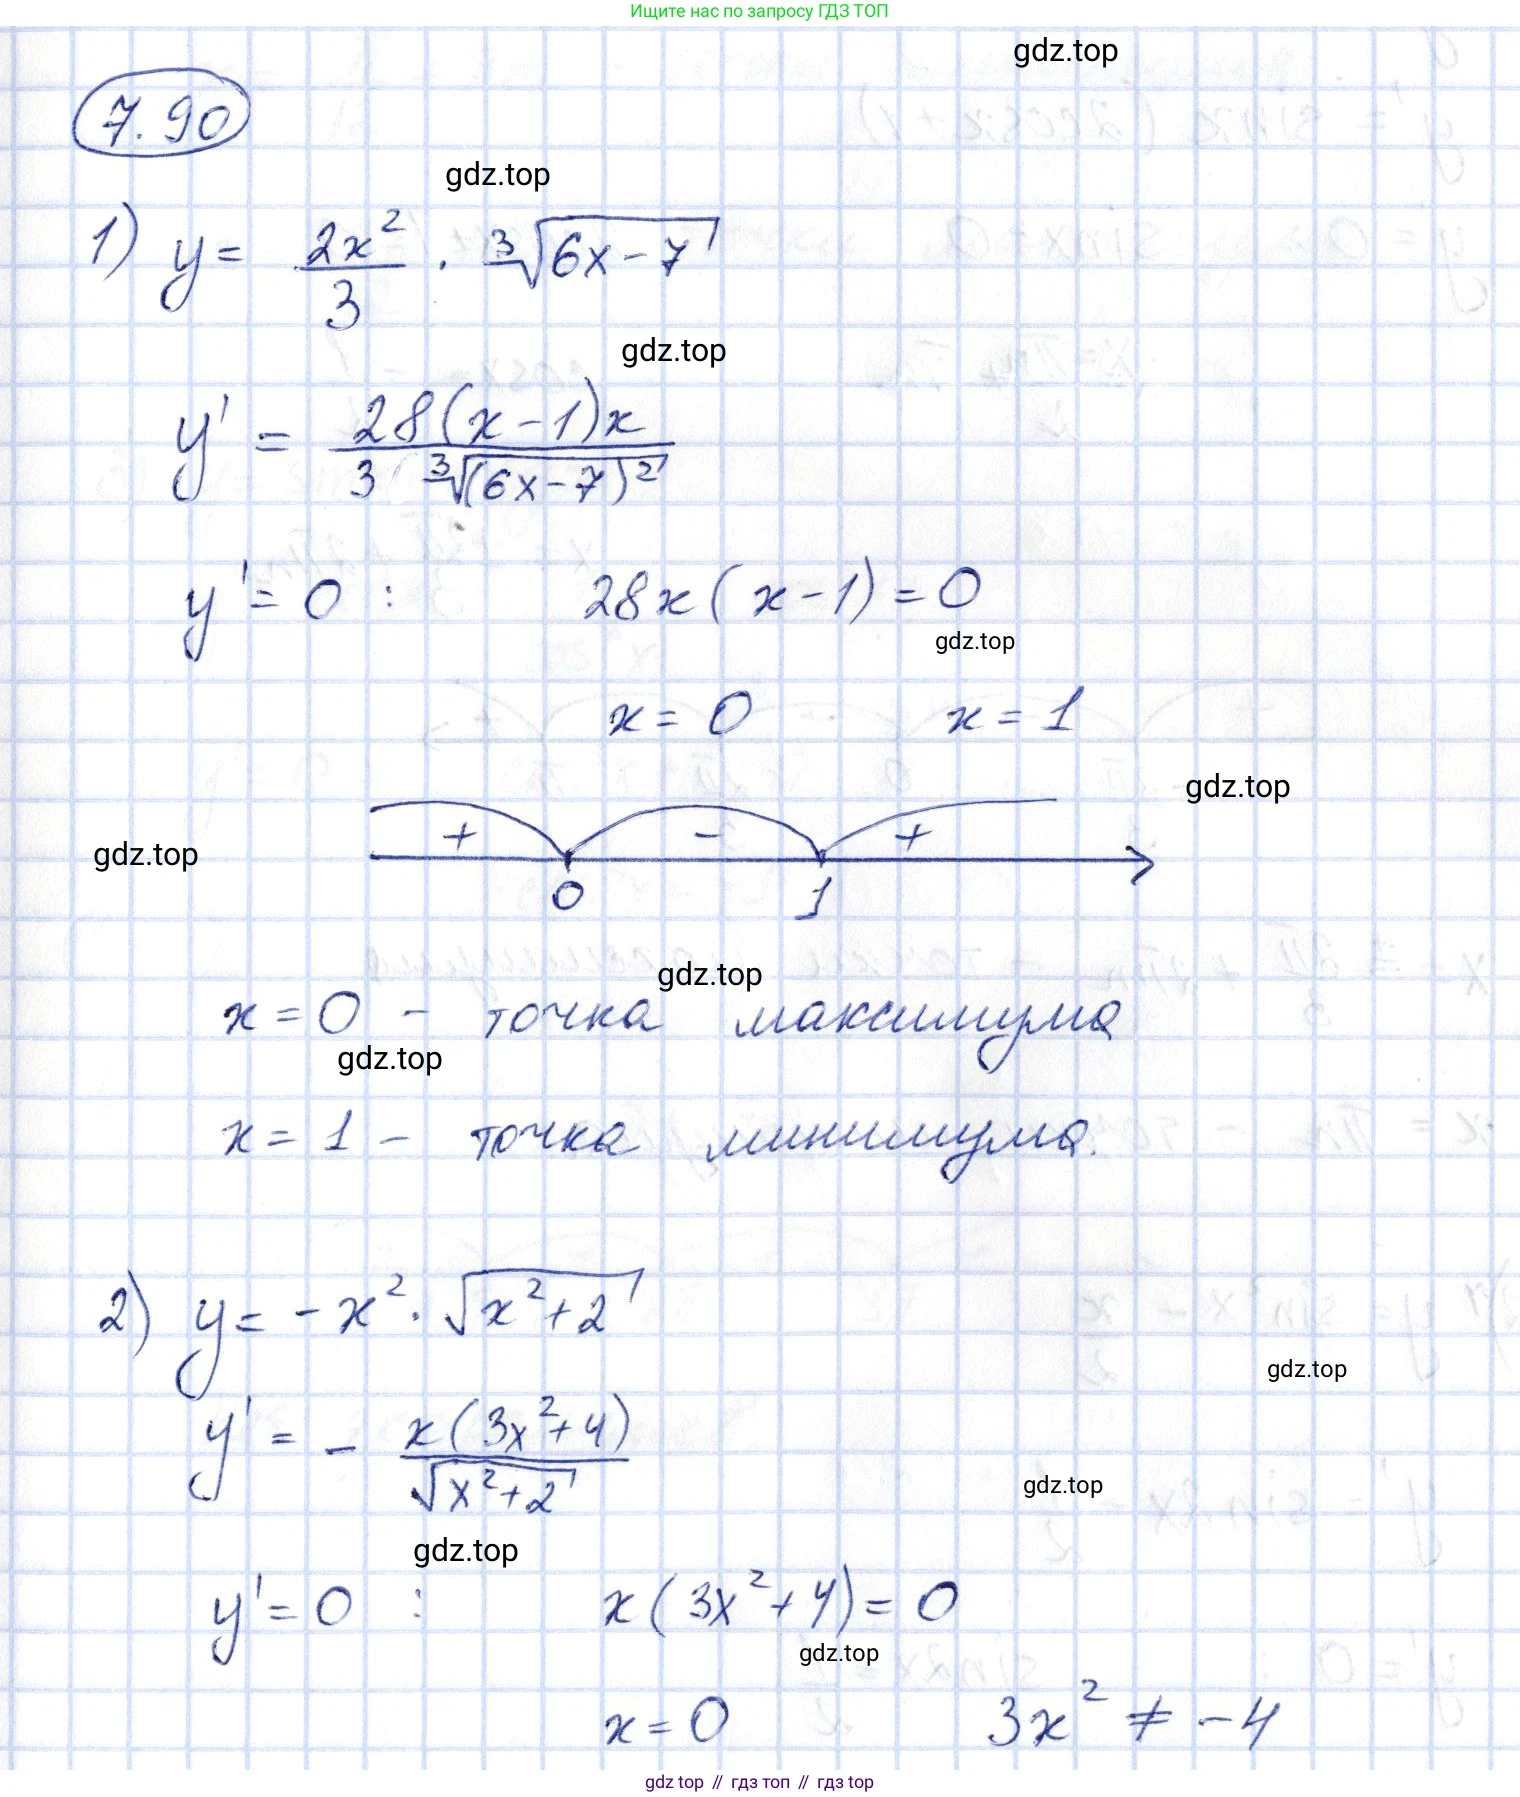 Ищите нас по запросу ГДЗ ТОП
gdz.top
7.90
gdz.top
1) y = 2x²/3 · ∛(6x-7)
gdz.top
y' = 28(x-1)x / 3∛(6x-7)²
y' = 0 : 28x(x-1) = 0
gdz.top
x = 0 x = 1
gdz.top
+ - +
gdz.top
0 1
gdz.top
x = 0 - точка максимума
gdz.top
x = 1 - точка минимума.
2) y = -x² · √(x²+2)
gdz.top
y' = - x(3x²+4) / √(x²+2)
gdz.top
gdz.top
y' = 0 : x(3x²+4) = 0
gdz.top
x = 0 3x² ≠ -4
gdz top // гдз топ // гдз top